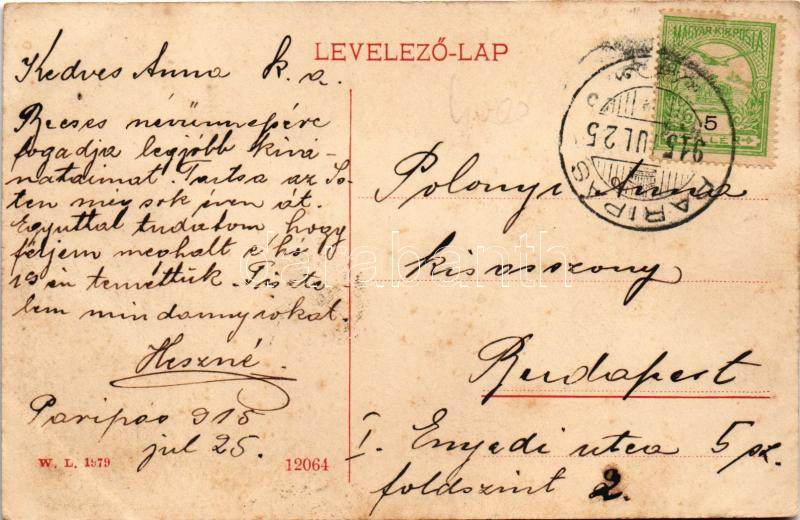 LEVELEZŐ-LAP
Kedves Anna k. a.
Becses névünnepére
fogadja legjobb kivá-
nataimat. Tartsa az Is-
ten még sok éven át.
Egyuttal tudatom, hogy
férjem meghalt e hó
19 én temettük. Tiszte-
lem mindannyiokat.
Heszné.
Paripás 915
jul 25.
W. L. 1979
12064
MAGYAR KIR. POSTA
5
PARIPÁS
915 JUL 25
Polonyi Anna
kisasszony
Budapest
I. Enyedi utca 5 sz.
földszint 2.
darabanth